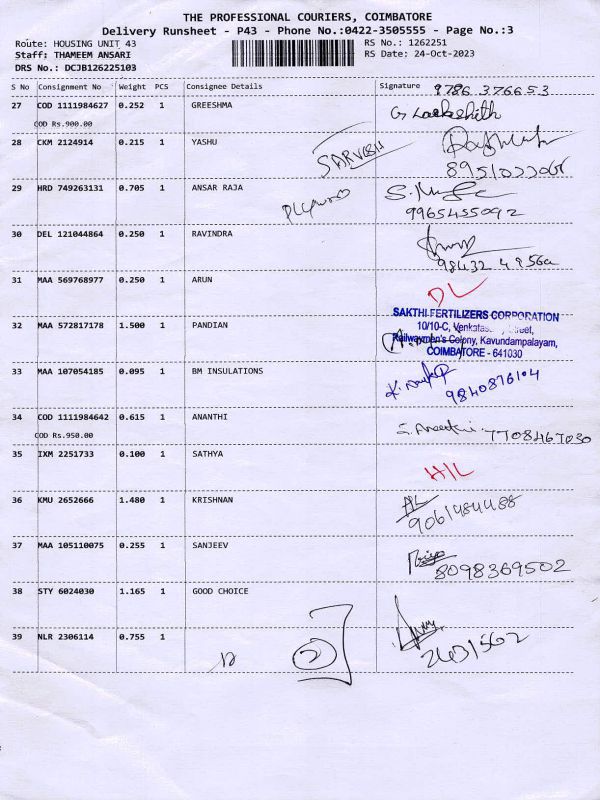 THE PROFESSIONAL COURIERS, COIMBATORE
Delivery Runsheet - P43 - Phone No.:0422-3505555 - Page No.:3
Route: HOUSING UNIT_43
RS No.: 1262251
Staff: THAMEEM ANSARI
RS Date: 24-Oct-2023
DRS No.: DCJB126225103
S No Consignment No Weight PCS Consignee Details Signature 9786 376653
27 COD 1111984627 0.252 1 GREESHMA
COD Rs.900.00
28 CKM 2124914 0.215 1 YASHU SARVESH
29 HRD 749263131 0.705 1 ANSAR RAJA
9965455092
30 DEL 121044864 0.250 1 RAVINDRA
31 MAA 569768977 0.250 1 ARUN DL
SAKTHI FERTILIZERS CORPORATION
32 MAA 572817178 1.500 1 PANDIAN 10/10-C,
Railwaymen's Colony, Kavundampalayam,
COIMBATORE - 641030
33 MAA 107054185 0.095 1 BM INSULATIONS
9840876104
34 COD 1111984642 0.615 1 ANANTHI 7708467030
COD Rs.950.00
35 IXM 2251733 0.100 1 SATHYA H/L
36 KMU 2652666 1.480 1 KRISHNAN
9061484488
37 MAA 105110075 0.255 1 SANJEEV
8098369502
38 STY 6024030 1.165 1 GOOD CHOICE
39 NLR 2306114 0.755 1
2